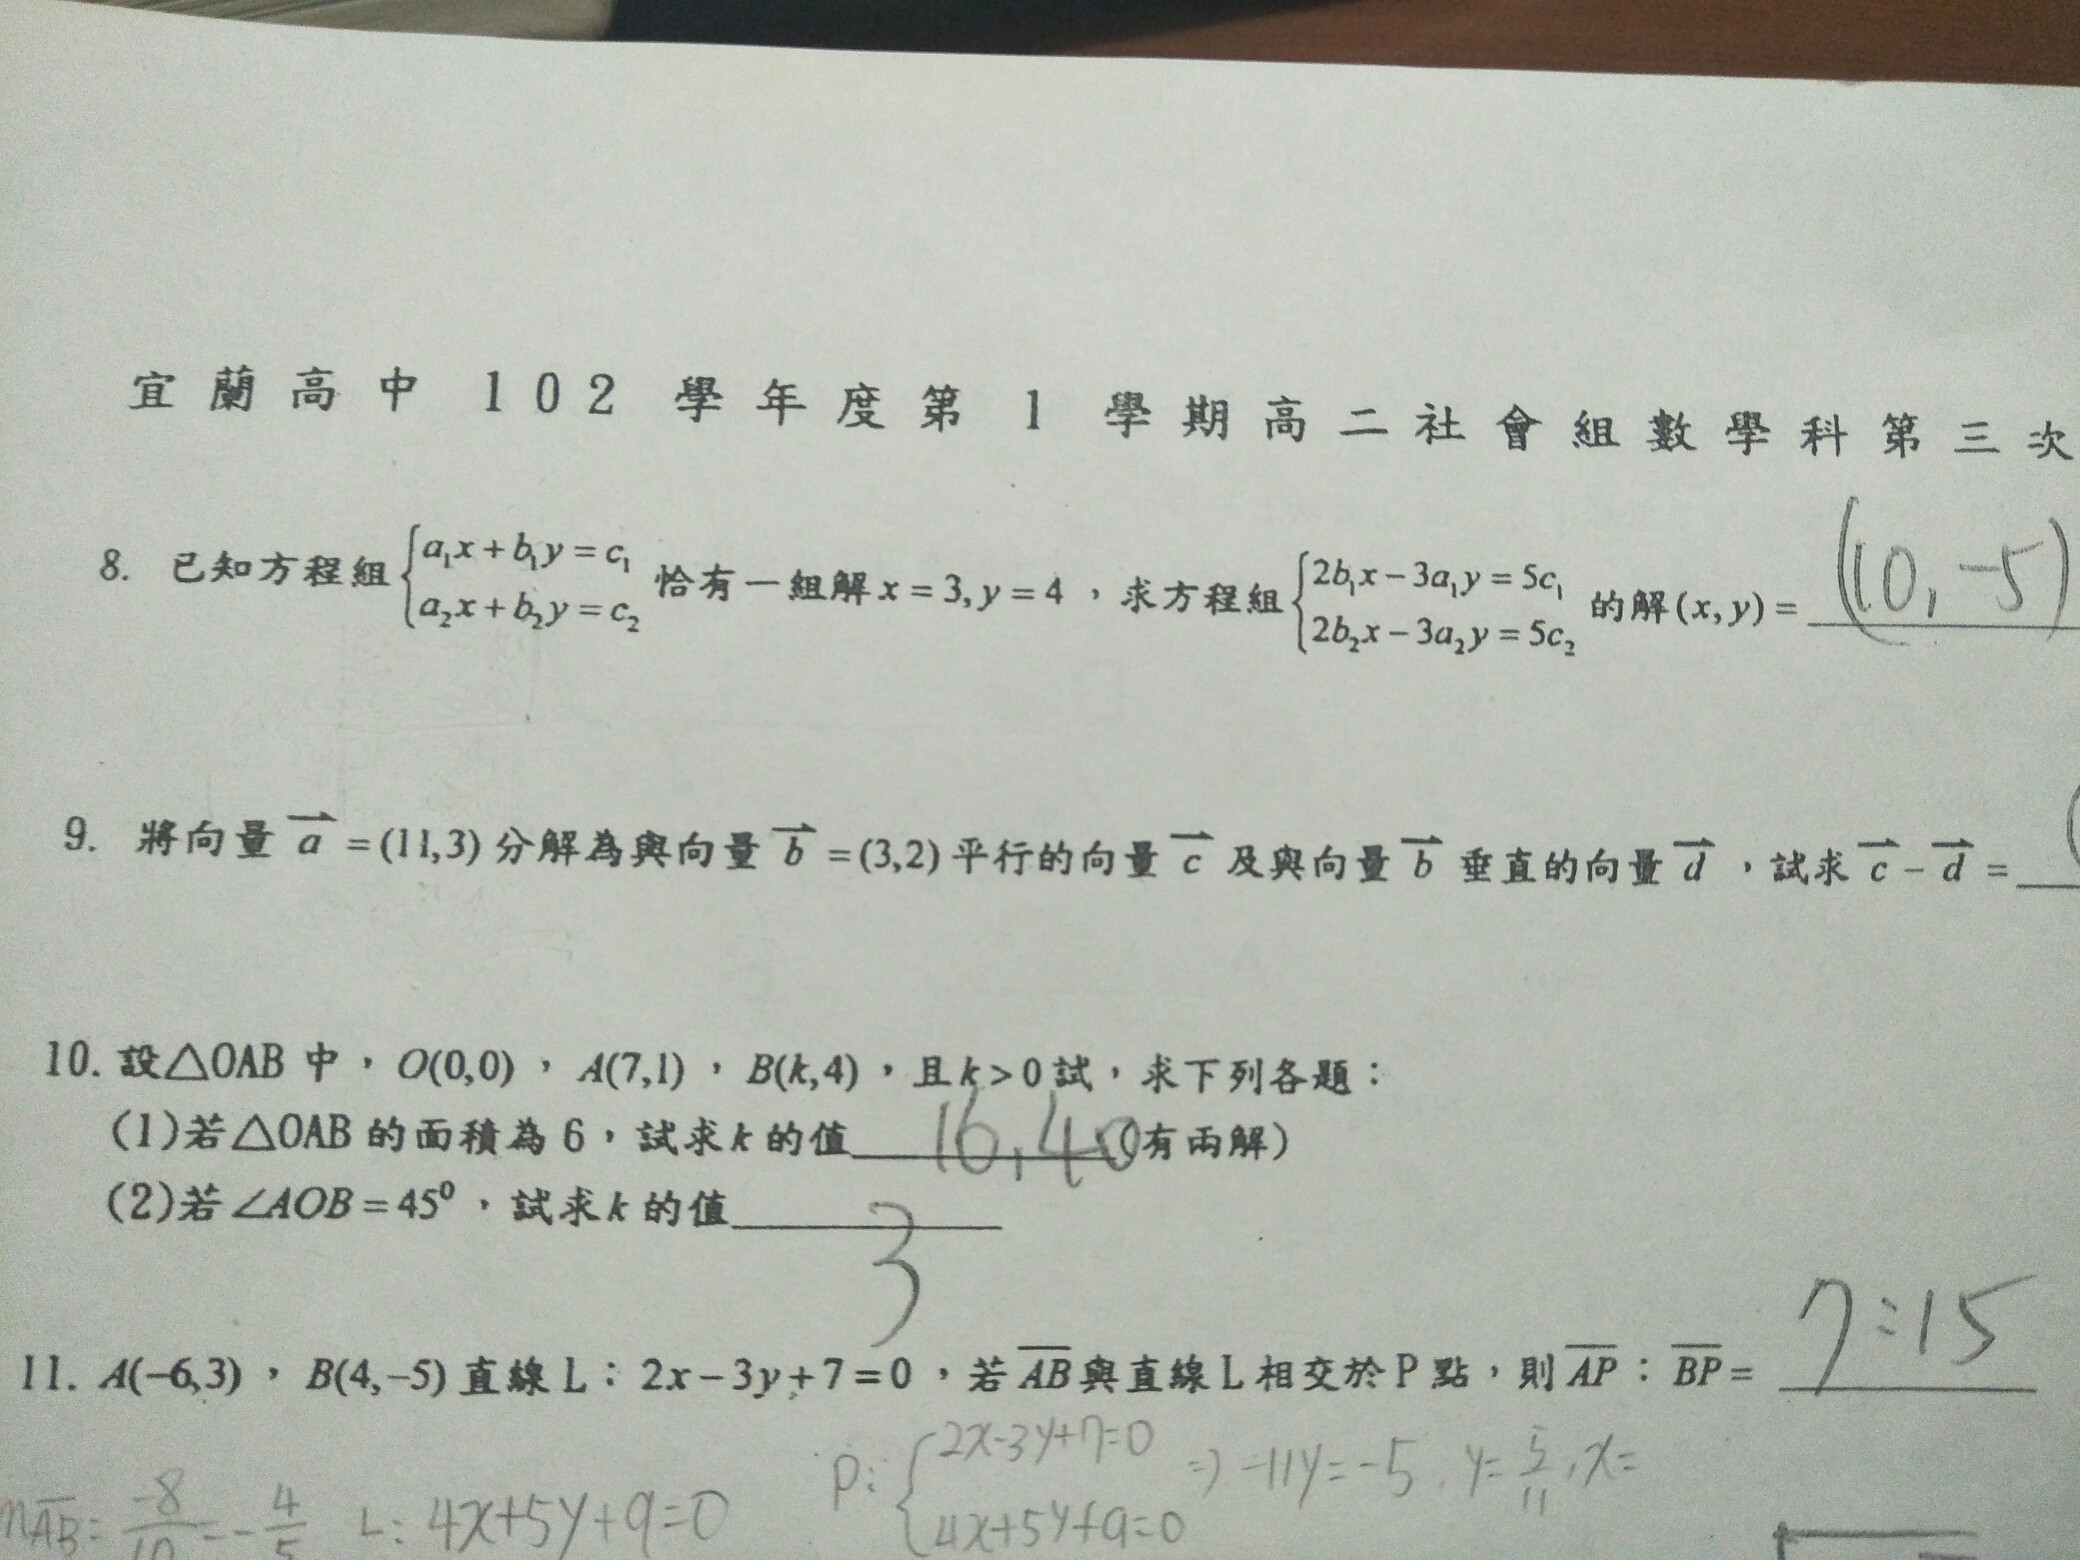 宜蘭高中 102 學年度第 1 學期高二社會組數學科第三次
8. 已知方程組 { a₁x + b₁y = c₁ , a₂x + b₂y = c₂ 恰有一組解 x = 3, y = 4 ，求方程組 { 2b₁x − 3a₁y = 5c₁ , 2b₂x − 3a₂y = 5c₂ 的解 (x, y) = (10, -5)
9. 將向量 a⃗ = (11,3) 分解為與向量 b⃗ = (3,2) 平行的向量 c⃗ 及與向量 b⃗ 垂直的向量 d⃗ ，試求 c⃗ − d⃗ = (
10. 設△OAB 中，O(0,0)，A(7,1)，B(k,4)，且 k > 0 試，求下列各題：
(1)若△OAB 的面積為 6，試求 k 的值 16, 40 (有兩解)
(2)若∠AOB = 45⁰，試求 k 的值 3
11. A(−6,3)，B(4,−5) 直線 L：2x − 3y + 7 = 0，若 A̅B̅ 與直線 L 相交於 P 點，則 A̅P̅：B̅P̅ = 7:15
P: { 2x-3y+7=0 , 4x+5y+9=0 => -11y=-5, y=5/11, x=
m A̅B̅ = -8/10 = -4/5 L: 4x+5y+9=0